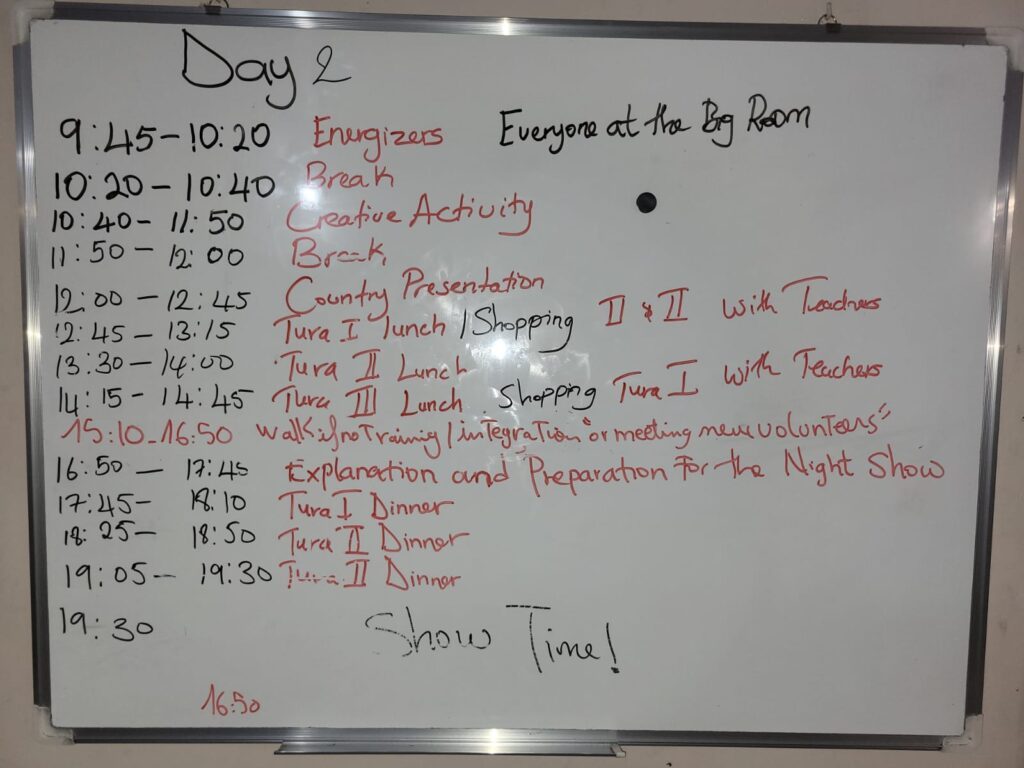 Day 2
9:45-10:20 Energizers Everyone at the Big Room
10:20 - 10:40 Break
10:40 - 11:50 Creative Activity
11:50 - 12:00 Break
12:00 - 12:45 Country Presentation
12:45 - 13:15 Tura I Lunch / Shopping II & II with Teachers
13:30-14:00 Tura II Lunch
14:15 - 14:45 Tura III Lunch Shopping Tura I with Teachers
15:10-16:50 Walk ifnoTraining/integration "or meeting new volunteers"
16:50 - 17:45 Explanation and Preparation For the Night Show
17:45- 18:10 Tura I Dinner
18:25- 18:50 Tura II Dinner
19:05- 19:30 Tura II Dinner
19:30 Show Time!
16:50